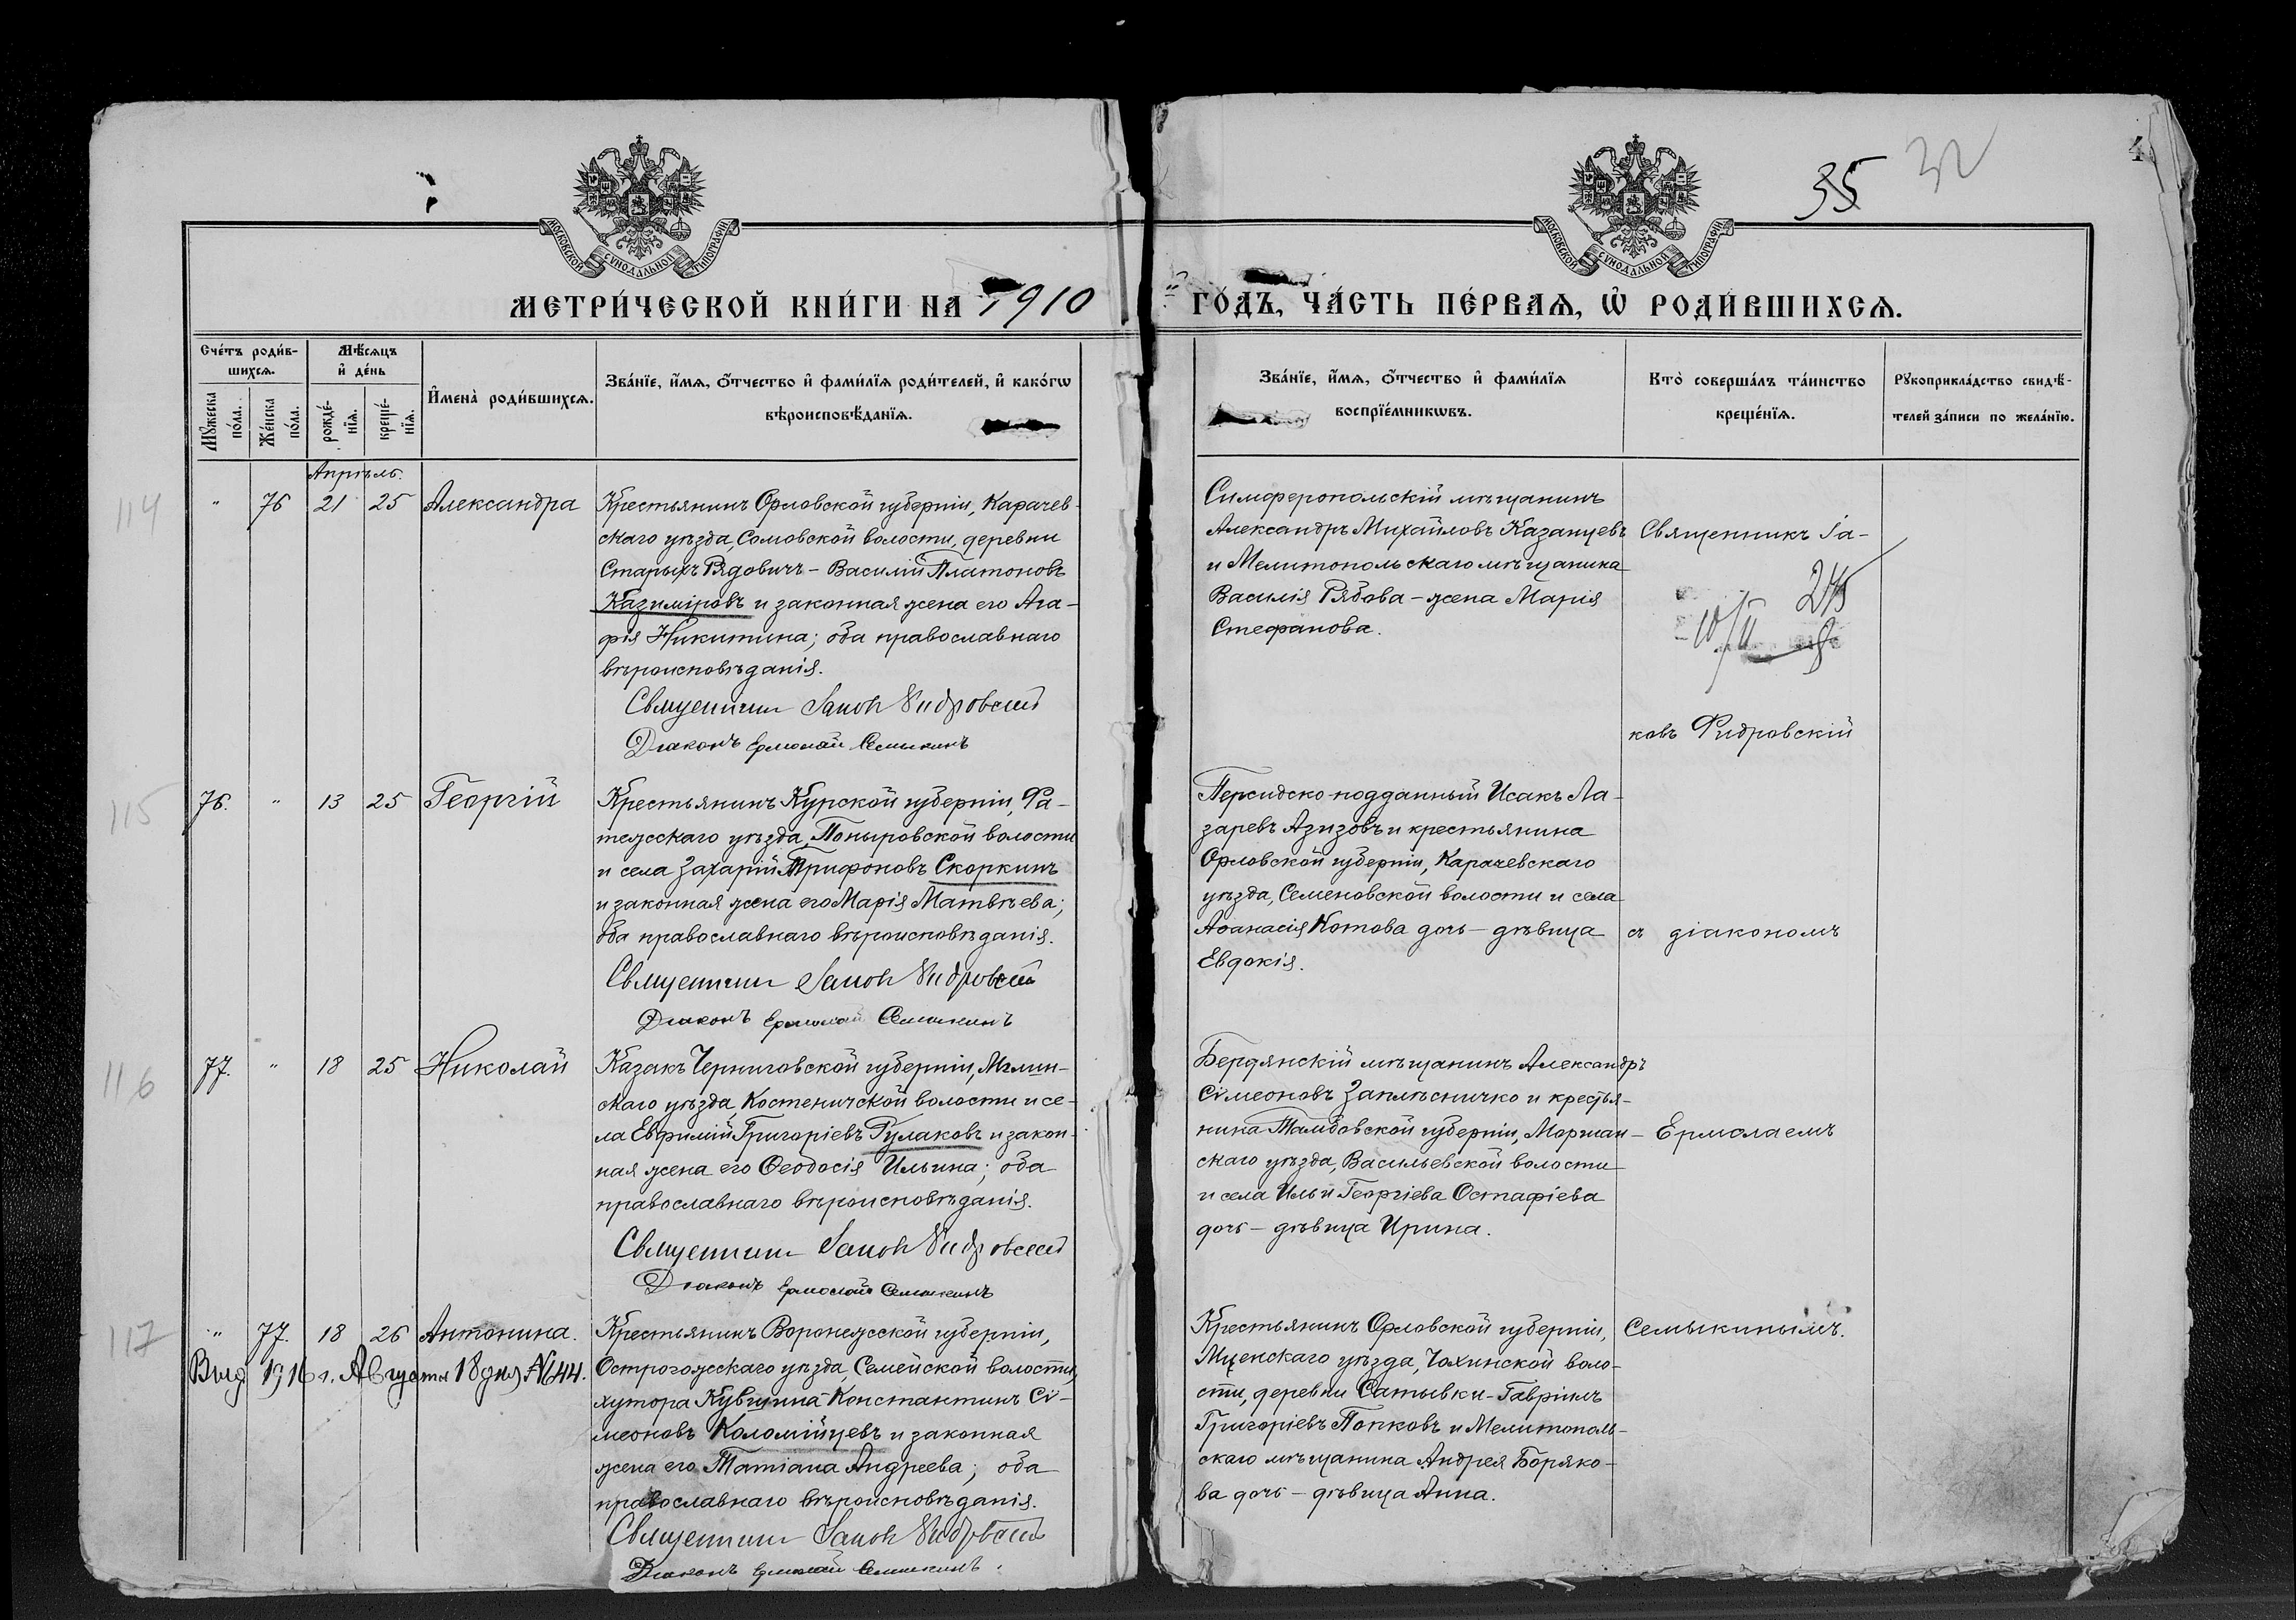 35 32
4
МОСКОВСКОЙ СѴНОДАЛЬНОЙ ТИПОГРАФІИ
МОСКОВСКОЙ СѴНОДАЛЬНОЙ ТИПОГРАФІИ
МЕТРИ́ЧЕСКОЙ КНИ́ГИ НА 1910
ГО́ДЪ, ЧА́СТЬ ПЕ́РВАѦ, Ѡ҆ РОДИ́ВШИХСѦ.
Сче́тъ роди́в-
шихсѧ.
Мѣ́сѧцъ
и҆ де́нь
Мꙋ́жеска
по́ла.
Же́нска
по́ла.
рожде́-
нїѧ.
креще́-
нїѧ.
И҆мена̀ роди́вшихсѧ.
Зва́нїе, и҆́мѧ, ѻ҆́тчество и҆ фами́лїѧ роди́телей, и҆ како́гѡ
вѣроисповѣ́данїѧ.
Зва́нїе, и҆́мѧ, ѻ҆́тчество и҆ фами́лїѧ
воспрїе́мникѡвъ.
Кто̀ соверша́лъ та́инство
креще́нїѧ.
Рꙋкоприкла́дство свидѣ́-
телей за́писи по жела́нїю.
Апрѣль.
114
" 76 21 25 Александра
Крестьянинъ Орловской губерніи, Карачев-
скаго уѣзда, Сомовской волости, деревни
Старыхъ Рядовичъ - Василій Платоновъ
Казиміровъ и законная жена его Ага-
фія Никитина; оба православнаго
вѣроисповѣданія.
Священникъ Іаковъ Фидровскій
Діаконъ Ермолай Семыкинъ
Симферопольскій мѣщанинъ
Александръ Михайловъ Казанцевъ
и Мелитопольскаго мѣщанина
Василія Рябова - жена Марія
Стефанова.
Священникъ Іа-
ковъ Фидровскій
115
76. " 13 25 Георгій
Крестьянинъ Курской губерніи, Фа-
тежскаго уѣзда, Поныровской волости
и села Захарій Трифоновъ Скоркинъ
и законная жена его Марія Матвѣева;
оба православнаго вѣроисповѣданія.
Священникъ Іаковъ Фидровскій
Діаконъ Ермолай Семыкинъ
Персидско-подданный Исакъ Ла-
заревъ Азизовъ и крестьянина
Орловской губерніи, Карачевскаго
уѣзда, Семеновской волости и села
Аѳанасія Котова дочь - дѣвица
Евдокія.
съ діакономъ
116
77. " 18 25 Николай
Казакъ Черниговской губерніи, Мглин-
скаго уѣзда, Костеничской волости и се-
ла Евфимій Григоріевъ Гулаковъ и закон-
ная жена его Ѳеодосія Ильина; оба
православнаго вѣроисповѣданія.
Священникъ Іаковъ Фидровскій
Діаконъ Ермолай Семыкинъ
Бердянскій мѣщанинъ Александръ
Сѵмеоновъ Заплѣсничко и крестья-
нина Тамбовской губерніи, Моршан-
скаго уѣзда, Васильевской волости
и села Ильи Георгіева Остафіева
дочь - дѣвица Ирина.
Ермолаемъ
117
" 77. 18 26 Антонина.
Выд 1916 г. Августа 18 дня №644.
Крестьянинъ Воронежской губерніи,
Острогожскаго уѣзда, Семейской волости,
хутора Кувшина Константинъ Сѵ-
меоновъ Коломійцевъ и законная
жена его Татіана Андреева; оба
православнаго вѣроисповѣданія.
Священникъ Іаковъ Фидровскій
Діаконъ Ермолай Семыкинъ.
Крестьянинъ Орловской губерніи,
Мценскаго уѣзда, Чахинской воло-
сти, деревни Сатывки - Гавріилъ
Григоріевъ Попковъ и Мелитополь-
скаго мѣщанина Андрея Боряко-
ва дочь - дѣвица Анна.
Семыкинымъ.